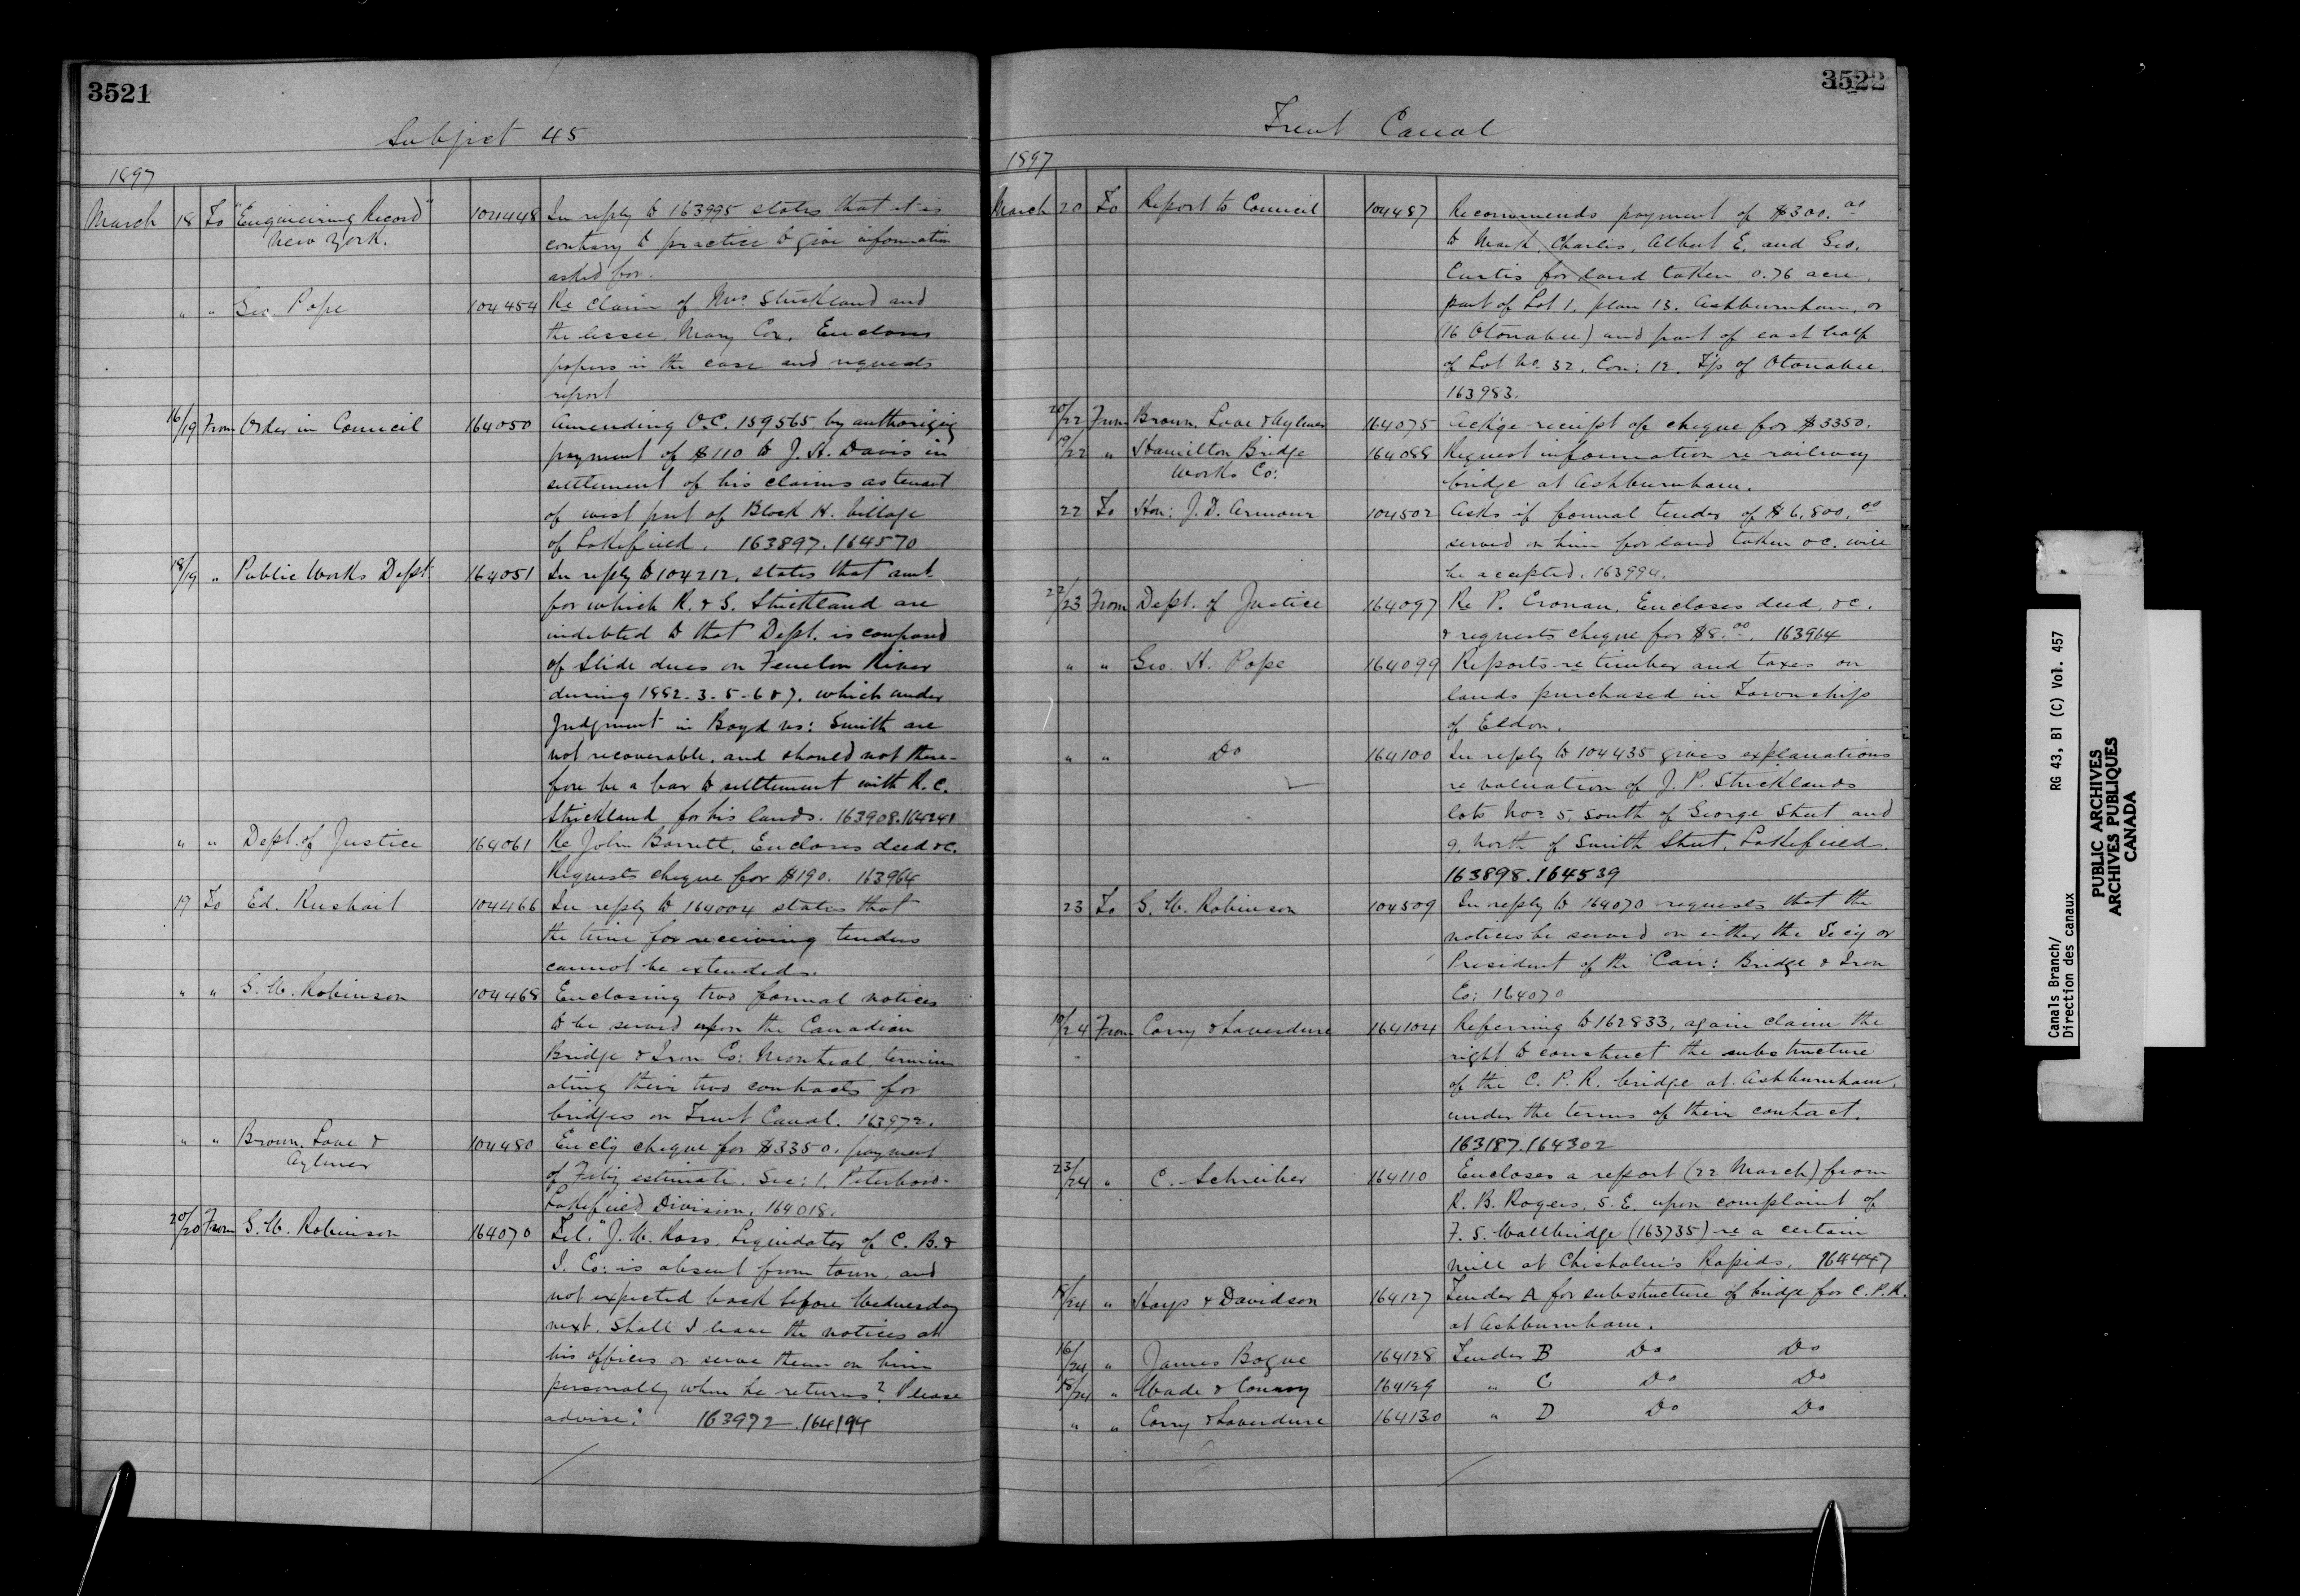 3521
Subject 45
1897
March 18 To "Engineering Record" 104448 In reply to 163995 states that it is
New York. contrary to practice to give information
asked for.
" " Geo Pope 104454 Re Claim of Mrs Strickland and
the lessee, Mary Cox. Encloses
papers in the case and requests
report
16/19 From Order in Council 164050 Amending O.C. 159565 by authorizing
payment of $110 to J. H. Davis in
settlement of his claims as tenant
of west part of Block H. Village
of Lakefield. 163897.164570
18/19 " Public Works Dept 164051 In reply to 104212, states that amt.
for which R. & S. Strickland are
indebted to that Dept. is composed
of Slide dues on Fenelon River
during 1882-3-5-6 & 7. which under
Judgment in Boyd vs: Smith are
not recoverable, and should not there-
fore be a bar to settlement with R. C.
Strickland for his lands. 163908.164241
" " Dept. of Justice 164061 Re John Barrett, Encloses deed &c.
Requests cheque for $190. 163964
19 To Ed. Rushait 104466 In reply to 164004 states that
the time for receiving tenders
cannot be extended.
" " S. W. Robinson 104468 Enclosing two formal notices
to be served upon the Canadian
Bridge & Iron Co: Montreal, termin
ating their two contracts for
bridges on Trent Canal. 163972.
" " Brown, Love & 104480 Encl'g cheque for $3350. payment
Aylmer of Feb'y estimate. Sec: 1, Peterboro-
Lakefield Division, 164018.
20/20 From S. W. Robinson 164070 Tel. "J. W. Ross, Liquidator of C. B. &
I. Co: is absent from town, and
not expected back before Wednesday
next. Shall I leave the notices at
his offices or serve them on him
personally when he returns? Please
advise." 163972.164194
3522
Trent Canal
1897
March 20 To Report to Council 104487 Recommends payment of $300.00
to Mark, Charles, Albert E. and Geo.
Curtis for land taken 0.76 acre,
part of Lot 1, plan 13. Ashburnham, or
(16 Otonabee) and part of east half
of Lot No. 32, Con: 12, T'p of Otonabee
163983.
20/22 From Brown, Love & Aylmer 164075 Ack'ge receipt of cheque for $3350.
19/22 " Hamilton Bridge 164088 Request information re railway
Works Co: bridge at Ashburnham.
22 To Hon: J. D. Armour 104502 Asks if formal tender of $6,800.00
served on him for land taken &c. will
be accepted. 163994.
22/23 From Dept. of Justice 164097 Re P. Cronan, Encloses deed, &c.
& requests cheque for $8.00. 163964
" " Geo. H. Pope 164099 Reports re timber and taxes on
lands purchased in Township
of Eldon.
" " Do 164100 In reply to 104435 gives explanations
re valuation of J. P. Stricklands
lots Nos 5, South of George Street and
9, North of Smith Street, Lakefield.
163898.164539
23 To S. W. Robinson 104509 In reply to 164070 requests that the
notices be served on either the Sec'y or
President of the Can: Bridge & Iron
Co: 164070
19/24 From Corry & Laverdure 164104 Referring to 162833, again claim the
right to construct the substructure
of the C. P. R. bridge at Ashburnham,
under the terms of their contract.
163187.164302
23/24 " C. Schreiber 164110 Encloses a report (22 March) from
R. B. Rogers, S. E. upon complaint of
F. S. Wallbridge (163735) re a certain
mill at Chisholm's Rapids. 164447
18/24 " Hays & Davidson 164127 Tender A for substructure of bridge for C.P.R.
at Ashburnham.
16/24 " James Bogue 164128 Tender B Do Do
18/24 " Wade & Conway 164129 " C Do Do
" " Corry & Laverdure 164130 " D Do Do
Canals Branch/
Direction des canaux
RG 43, B1 (C) Vol. 457
PUBLIC ARCHIVES
ARCHIVES PUBLIQUES
CANADA